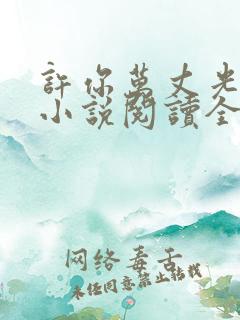 許你萬丈光
小說閱讀全
网络毒舌
未经同意禁止转载